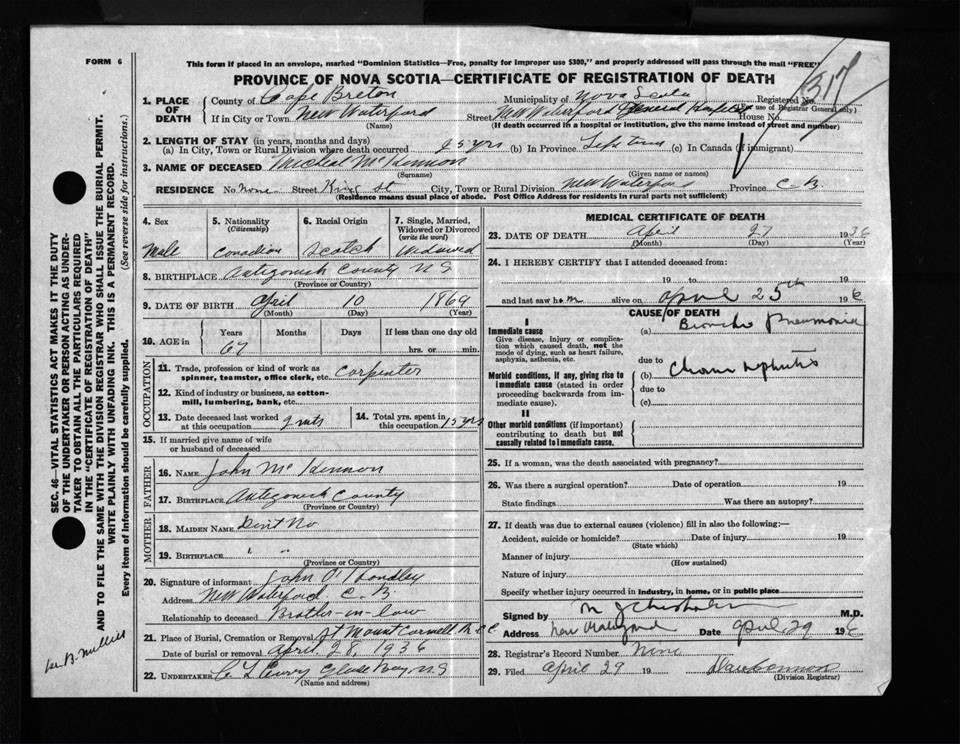 FORM 6
This form if placed in an envelope, marked "Dominion Statistics—Free, penalty for improper use $300," and properly addressed will pass through the mail "FREE"
317
PROVINCE OF NOVA SCOTIA—CERTIFICATE OF REGISTRATION OF DEATH
1. PLACE OF DEATH County of Cape Breton Municipality of Nova Scotia Registered No.
(For use of Registrar General only)
If in City or Town New Waterford Street New Waterford General Hospital House No.
(Name) (If death occurred in a hospital or institution, give the name instead of street and number)
2. LENGTH OF STAY (in years, months and days)
(a) In City, Town or Rural Division where death occurred 25 yrs (b) In Province Life time (c) In Canada (if immigrant)
3. NAME OF DECEASED Micheal McKennon
(Surname) (Given name or names)
RESIDENCE No. None Street King St City, Town or Rural Division New Waterford Province C. B.
(Residence means usual place of abode. Post Office Address for residents in rural parts not sufficient)
4. Sex 5. Nationality (Citizenship) 6. Racial Origin 7. Single, Married, Widowed or Divorced (write the word)
Male Canadian Scotch Widowed
8. BIRTHPLACE Antigonish County N S
(Province or County)
9. DATE OF BIRTH April 10 1869
(Month) (Day) (Year)
10. AGE in Years Months Days If less than one day old
67 hrs. or min.
OCCUPATION
11. Trade, profession or kind of work as spinner, teamster, office clerk, etc. Carpenter
12. Kind of industry or business, as cotton-mill, lumbering, bank, etc.
13. Date deceased last worked at this occupation 9 mts 14. Total yrs. spent in this occupation 15 yrs
15. If married give name of wife or husband of deceased
FATHER
16. NAME John McKennon
17. BIRTHPLACE Antigonish County
(Province or County)
MOTHER
18. MAIDEN NAME Dont No
19. BIRTHPLACE " "
(Province or Country)
20. Signature of informant John O'Handley
Address New Waterford C. B.
Relationship to deceased Brother-in-law
21. Place of Burial, Cremation or Removal Mount Carmell
Date of burial or removal April 28, 1936
22. UNDERTAKER Glace Bay N S
(Name and address)
MEDICAL CERTIFICATE OF DEATH
23. DATE OF DEATH April 27 1936
(Month) (Day) (Year)
24. I HEREBY CERTIFY that I attended deceased from:
19 to 19
and last saw him alive on April 25th 1936
CAUSE OF DEATH
I
Immediate cause (a) Broncho Pneumonia
Give disease, injury or complication which caused death, not the mode of dying, such as heart failure, asphyxia, asthenia, etc.
due to
Morbid conditions, if any, giving rise to immediate cause (stated in order proceeding backwards from immediate cause). (b) Chronic Nephritis
due to
(c)
II
Other morbid conditions (if important) contributing to death but not causally related to immediate cause.
25. If a woman, was the death associated with pregnancy?
26. Was there a surgical operation? Date of operation 19
State findings Was there an autopsy?
27. If death was due to external causes (violence) fill in also the following:—
Accident, suicide or homicide? Date of injury 19
(State which)
Manner of injury
(How sustained)
Nature of injury
Specify whether injury occurred in industry, in home, or in public place
Signed by M J Chisholm M.D.
Address New Waterford Date April 29 1936
28. Registrar's Record Number None
29. Filed April 29 19
(Division Registrar)
SEC. 46—VITAL STATISTICS ACT MAKES IT THE DUTY
OF THE UNDERTAKER OR PERSON ACTING AS UNDER-
TAKER TO OBTAIN ALL THE PARTICULARS REQUIRED
IN THE "CERTIFICATE OF REGISTRATION OF DEATH"
AND TO FILE THE SAME WITH THE DIVISION REGISTRAR WHO SHALL ISSUE THE BURIAL PERMIT.
WRITE PLAINLY WITH UNFADING INK. THIS IS A PERMANENT RECORD.
Every item of information should be carefully supplied. (See reverse side for instructions.)